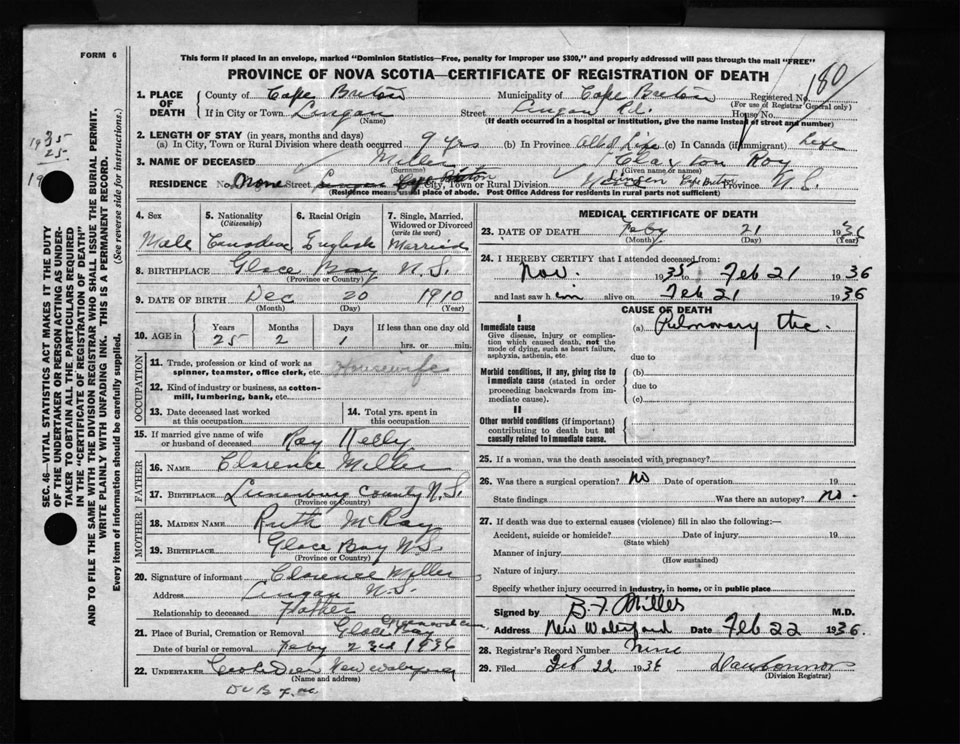 FORM 6
This form if placed in an envelope, marked "Dominion Statistics—Free, penalty for improper use $300," and properly addressed will pass through the mail "FREE"
PROVINCE OF NOVA SCOTIA—CERTIFICATE OF REGISTRATION OF DEATH
180
SEC. 46—VITAL STATISTICS ACT MAKES IT THE DUTY
OF THE UNDERTAKER OR PERSON ACTING AS UNDER-
TAKER TO OBTAIN ALL THE PARTICULARS REQUIRED
IN THE "CERTIFICATE OF REGISTRATION OF DEATH"
AND TO FILE THE SAME WITH THE DIVISION REGISTRAR WHO SHALL ISSUE THE BURIAL PERMIT.
WRITE PLAINLY WITH UNFADING INK. THIS IS A PERMANENT RECORD.
Every item of information should be carefully supplied. (See reverse side for instructions.)
1935
25
19
1. PLACE OF DEATH County of Cape Breton Municipality of Cape Breton Registered No.
(For use of Registrar General only)
If in City or Town Lingan Street Lingan Rd. House No.
(Name) (If death occurred in a hospital or institution, give the name instead of street and number)
2. LENGTH OF STAY (in years, months and days)
(a) In City, Town or Rural Division where death occurred 9 yrs (b) In Province All Life (c) In Canada (if immigrant) Life
3. NAME OF DECEASED Miller Claxton Roy
(Surname) (Given name or names)
RESIDENCE No. None Street Lingan Cape Breton City, Town or Rural Division Lingan Cape Breton Province N.S.
(Residence means usual place of abode. Post Office Address for residents in rural parts not sufficient)
4. Sex 5. Nationality 6. Racial Origin 7. Single, Married,
(Citizenship) Widowed or Divorced
(write the word)
Male Canadian English Married
8. BIRTHPLACE Glace Bay N.S.
(Province or Country)
9. DATE OF BIRTH Dec 20 1910
(Month) (Day) (Year)
10. AGE in Years Months Days If less than one day old
25 2 1 hrs. or min.
OCCUPATION
11. Trade, profession or kind of work as
spinner, teamster, office clerk, etc. Housewife
12. Kind of industry or business, as cotton-
mill, lumbering, bank, etc.
13. Date deceased last worked 14. Total yrs. spent in
at this occupation. this occupation.
15. If married give name of wife
or husband of deceased Ray Kelly
FATHER
16. NAME Clarence Miller
17. BIRTHPLACE Lunenburg County N.S.
(Province or Country)
MOTHER
18. MAIDEN NAME Ruth McRay
19. BIRTHPLACE Glace Bay N.S.
(Province or Country)
20. Signature of informant Clarence Miller
Address Lingan N.S.
Relationship to deceased Father
Greenwood Cem.
21. Place of Burial, Cremation or Removal Glace Bay
Date of burial or removal Feby 23rd 1936
22. UNDERTAKER New Waterford
(Name and address)
MEDICAL CERTIFICATE OF DEATH
23. DATE OF DEATH Feby 21 1936
(Month) (Day) (Year)
24. I HEREBY CERTIFY that I attended deceased from:
Nov. 1935 to Feb 21 1936
and last saw him alive on Feb 21 1936
CAUSE OF DEATH
I
Immediate cause (a) Pulmonary tbc.
Give disease, injury or complica-
tion which caused death, not the
mode of dying, such as heart failure,
asphyxia, asthenia, etc. due to
Morbid conditions, if any, giving rise to (b)
immediate cause (stated in order due to
proceeding backwards from im-
mediate cause). (c)
II
Other morbid conditions (if important)
contributing to death but not
causally related to immediate cause.
25. If a woman, was the death associated with pregnancy?
26. Was there a surgical operation? No Date of operation 19
State findings Was there an autopsy? No.
27. If death was due to external causes (violence) fill in also the following:—
Accident, suicide or homicide? Date of injury 19
(State which)
Manner of injury
(How sustained)
Nature of injury
Specify whether injury occurred in industry, in home, or in public place
Signed by B. F. Miller M.D.
Address New Waterford Date Feb 22 1936.
28. Registrar's Record Number Nine
29. Filed Feb 22 1936 Dan Connor
(Division Registrar)